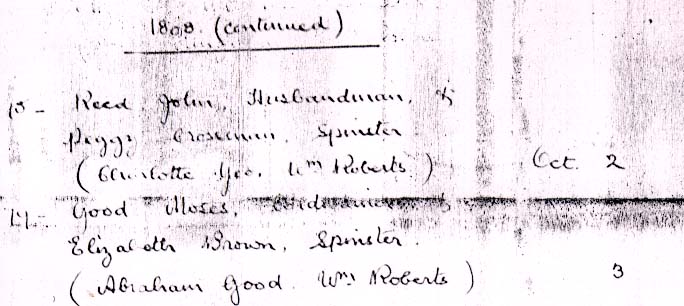 1808. (continued)
13 - Reed John, Husbandman, &
Peggy Crossman, Spinster
(Charlotte Yeo, Wm Roberts.) Oct. 2
14 - Good Moses, &
Elizabeth Brown, Spinster.
(Abraham Good. Wm Roberts) 3